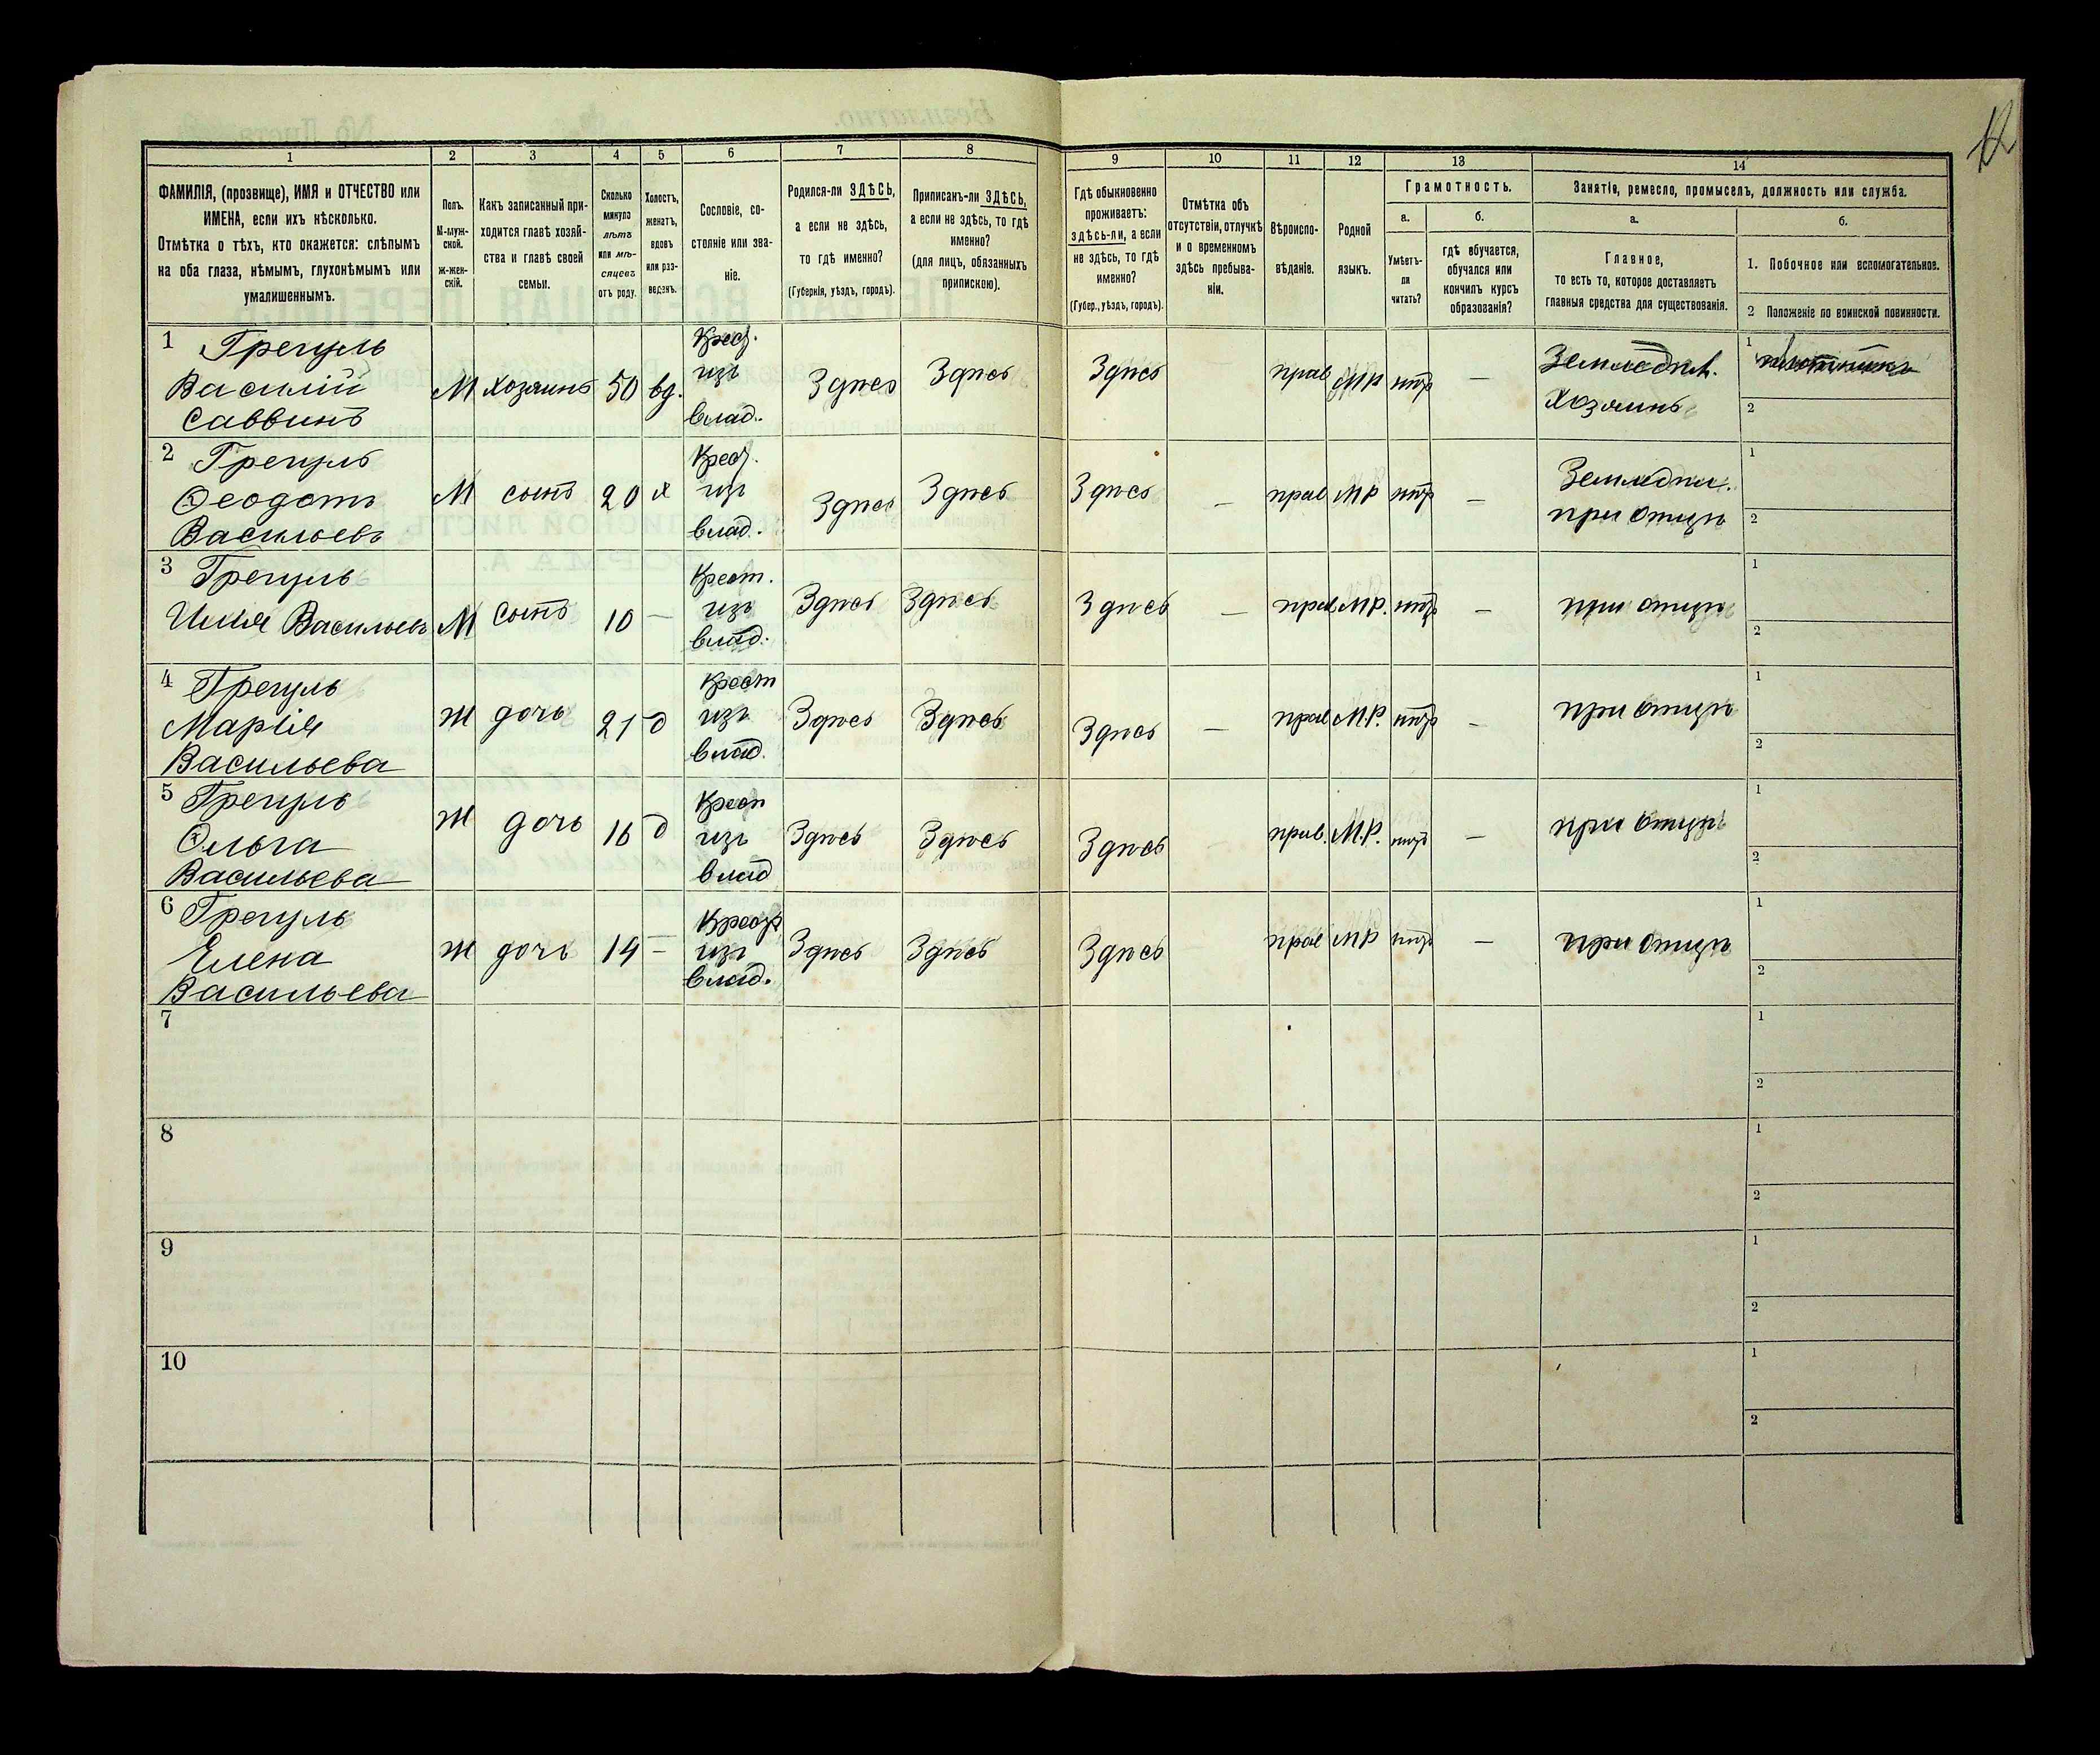 12
1 2 3 4 5 6 7 8 9 10 11 12 13 14
ФАМИЛІЯ, (прозвище), ИМЯ и ОТЧЕСТВО или
ИМЕНА, если ихъ нѣсколько.
Отмѣтка о тѣхъ, кто окажется: слѣпымъ
на оба глаза, нѣмымъ, глухонѣмымъ или
умалишеннымъ.
Полъ.
М-муж-
ской.
ж-жен-
скій.
Какъ записанный при-
ходится главѣ хозяй-
ства и главѣ своей
семьи.
Сколько
минуло
лѣтъ
или мѣ-
сяцевъ
отъ роду.
Холостъ,
женатъ,
вдовъ
или раз-
веденъ.
Сословіе, со-
стояніе или зва-
ніе.
Родился-ли ЗДѢСЬ,
а если не здѣсь,
то гдѣ именно?
(Губернія, уѣздъ, городъ).
Приписанъ-ли ЗДѢСЬ,
а если не здѣсь, то гдѣ
именно?
(для лицъ, обязанныхъ
припискою).
Гдѣ обыкновенно
проживаетъ:
здѣсь-ли, а если
не здѣсь, то гдѣ
именно?
(Губер., уѣздъ, городъ).
Отмѣтка объ
отсутствіи, отлучкѣ
и о временномъ
здѣсь пребыва-
ніи.
Вѣроиспо-
вѣданіе.
Родной
языкъ.
Грамотность.
а.
Умѣетъ-
ли
читать?
б.
гдѣ обучается,
обучался или
кончилъ курсъ
образованія?
Занятія, ремесло, промыселъ, должность или служба.
а.
Главное,
то есть то, которое доставляетъ
главныя средства для существованія.
б.
1. Побочное или вспомогательное.
2 Положеніе по воинской повинности.
1 Грегуль
Василій
Саввинъ
М хозяинъ 50 вд.
Крест.
изъ
влад.
Здѣсь Здѣсь Здѣсь прав МР нѣтъ —
Земледѣл.
Хозяинъ
1
2
2 Грегуль
Ѳеодотъ
Васильевъ
М сынъ 20 х
Крест.
изъ
влад.
Здѣсь Здѣсь Здѣсь — прав МР нѣтъ —
Земледѣл.
при отцѣ
1
2
3 Грегуль
Илія Васильевъ
М сынъ 10 —
Крест.
изъ
влад.
Здѣсь Здѣсь Здѣсь — прав МР. нѣтъ —
при отцѣ
1
2
4 Грегуль
Марія
Васильева
ж дочь 21 д
Крест
изъ
влад.
Здѣсь Здѣсь Здѣсь — прав М.Р. нѣтъ —
при отцѣ
1
2
5 Грегуль
Ольга
Васильева
ж дочь 16 д
Крест
изъ
влад
Здѣсь Здѣсь Здѣсь — прав. М.Р. нѣтъ —
при отцѣ
1
2
6 Грегуль
Елена
Васильева
ж дочь 14 —
Крест
изъ
влад.
Здѣсь Здѣсь Здѣсь прав МР нѣтъ —
при отцѣ
1
2
7
1
2
8
1
2
9
1
2
10
1
2